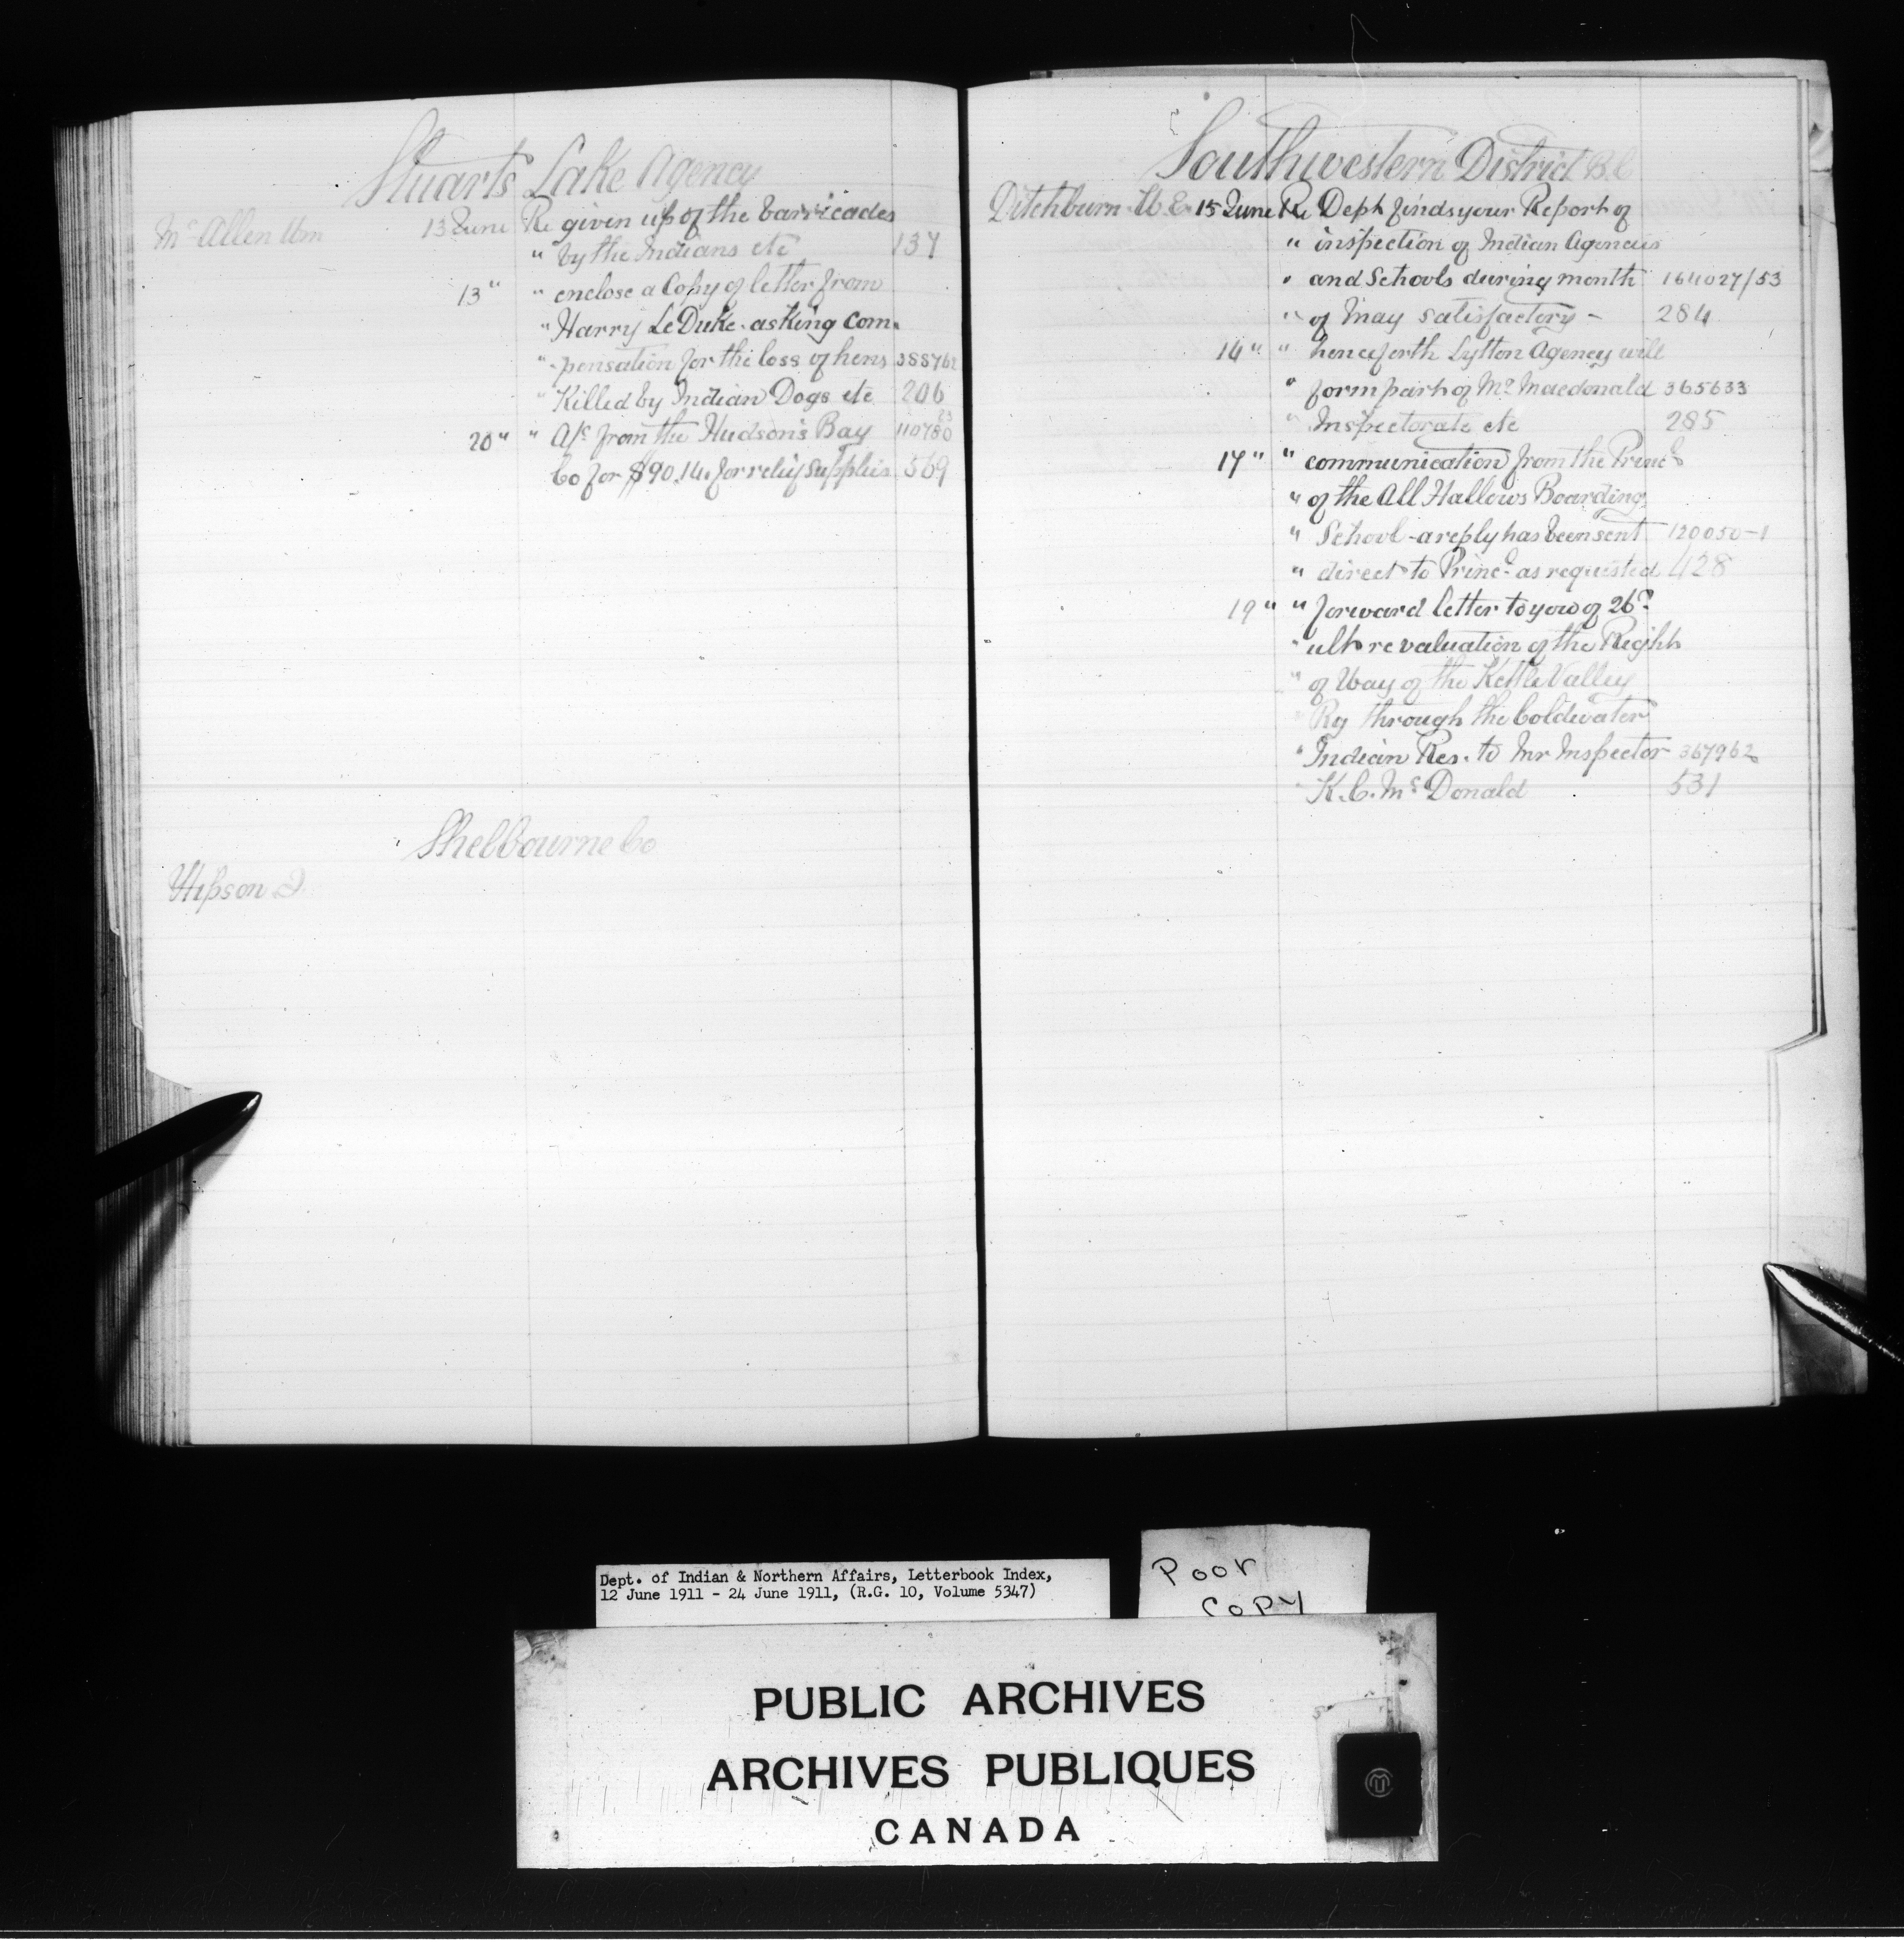 Stuarts Lake Agency
McAllen Wm 13 June Re given up of the barricades
" by the Indians etc 137
13 " " enclose a Copy of letter from
" Harry LeDuke. asking com-
" pensation for the loss of hens 388762
" Killed by Indian Dogs etc 206
20 " " A/c from the Hudson's Bay 110780 23
Co for $90.14. for relief supplies 569
Shelbourne Co
Hipson J.
Southwestern District B.C
Ditchburn W.E. 15 June Re Dept finds your Report of
" inspection of Indian Agencies
" and Schools during month 164027/53
" of May satisfactory - 284
14 " " henceforth Lytton Agency will
" form part of Mr Macdonald 365633
" Inspectorate etc 285
17 " " communication from the Princl
" of the All Hallows Boarding
" School - a reply has been sent 120050-1
" direct to Princl as requested 428
19 " " forward letter to you of 26th
" ult re valuation of the Right
" of Way of the Kettle Valley
" Ry through the Coldwater
" Indian Res. to Mr Inspector 367962
" K.C. McDonald 531
Dept. of Indian & Northern Affairs, Letterbook Index,
12 June 1911 - 24 June 1911, (R.G. 10, Volume 5347)
Poor
Copy
PUBLIC ARCHIVES
ARCHIVES PUBLIQUES
CANADA